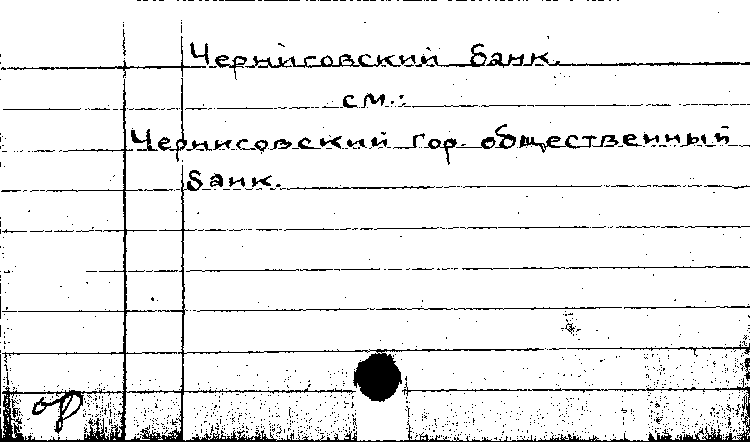 Чернисовский банк.
см.:
Чернисовский гор. общественный
банк.
ор